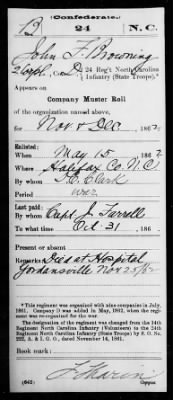 (Confederate.)
B 24 N.C.
John F. Browning
2 Corpl., Co. D, 24 Reg't North Carolina
Infantry (State Troops).*
Appears on
Company Muster Roll
of the organization named above,
for Nov & Dec, 1862
Enlisted:
When May 15, 1862
Where Halifax Co. N.C.
By whom Clark
Period war
Last paid:
By whom Capt. J. Terrell
To what time Oct 31, 186
Present or absent
Remarks: Died at Hospital
Gordonsville Nov 25/62
*This regiment was organized with nine companies in July,
1861. Company D was added in May, 1862, when the regiment
was re-organized for the war.
The designation of the regiment was changed from the 14th
Regiment North Carolina Infantry (Volunteers) to the 24th
Regiment North Carolina Infantry (State Troops) by S. O. No.
222, A. & I. G. O., dated November 14, 1861.
Book mark:
(642)
Copyist.